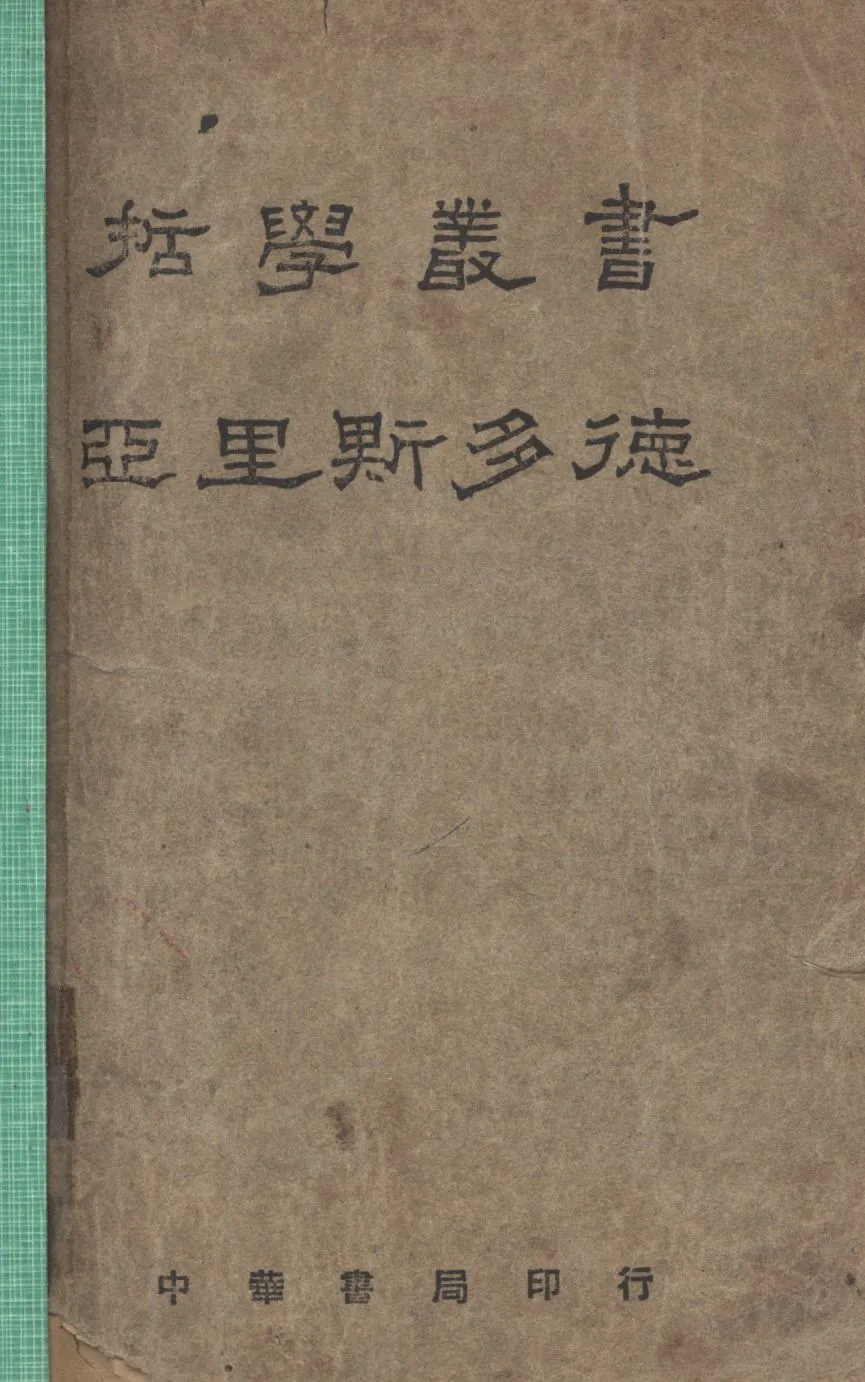 哲學叢書
亞里斯多德
中華書局印行